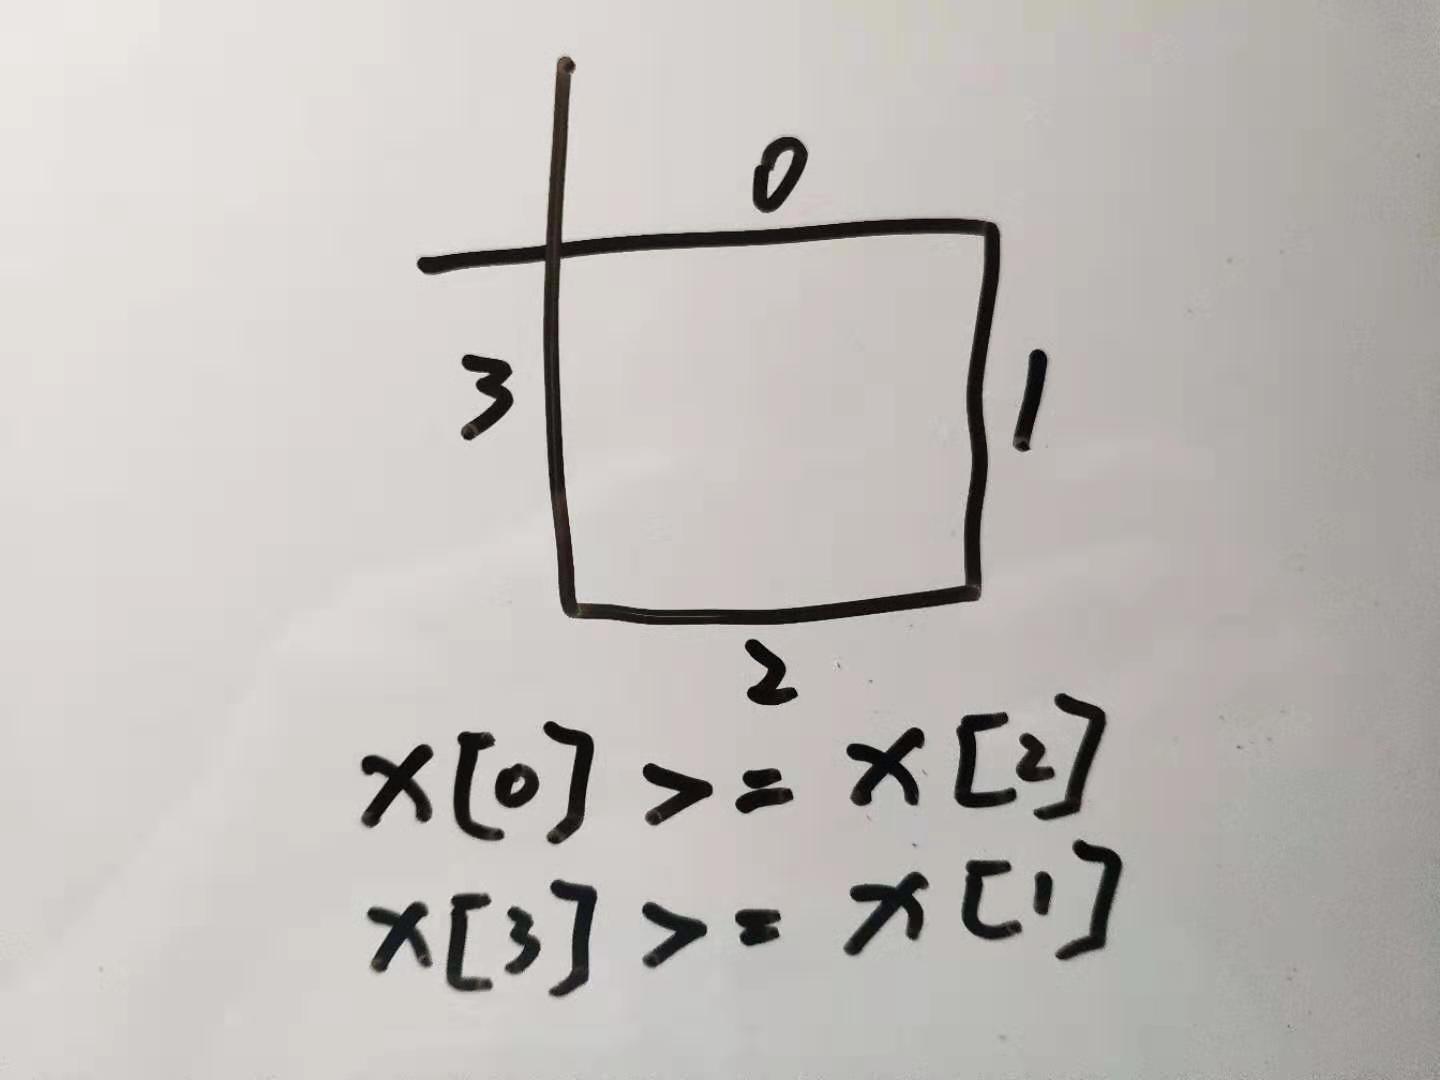 0
3
1
2
x[0] >= x[2]
x[3] >= x[1]